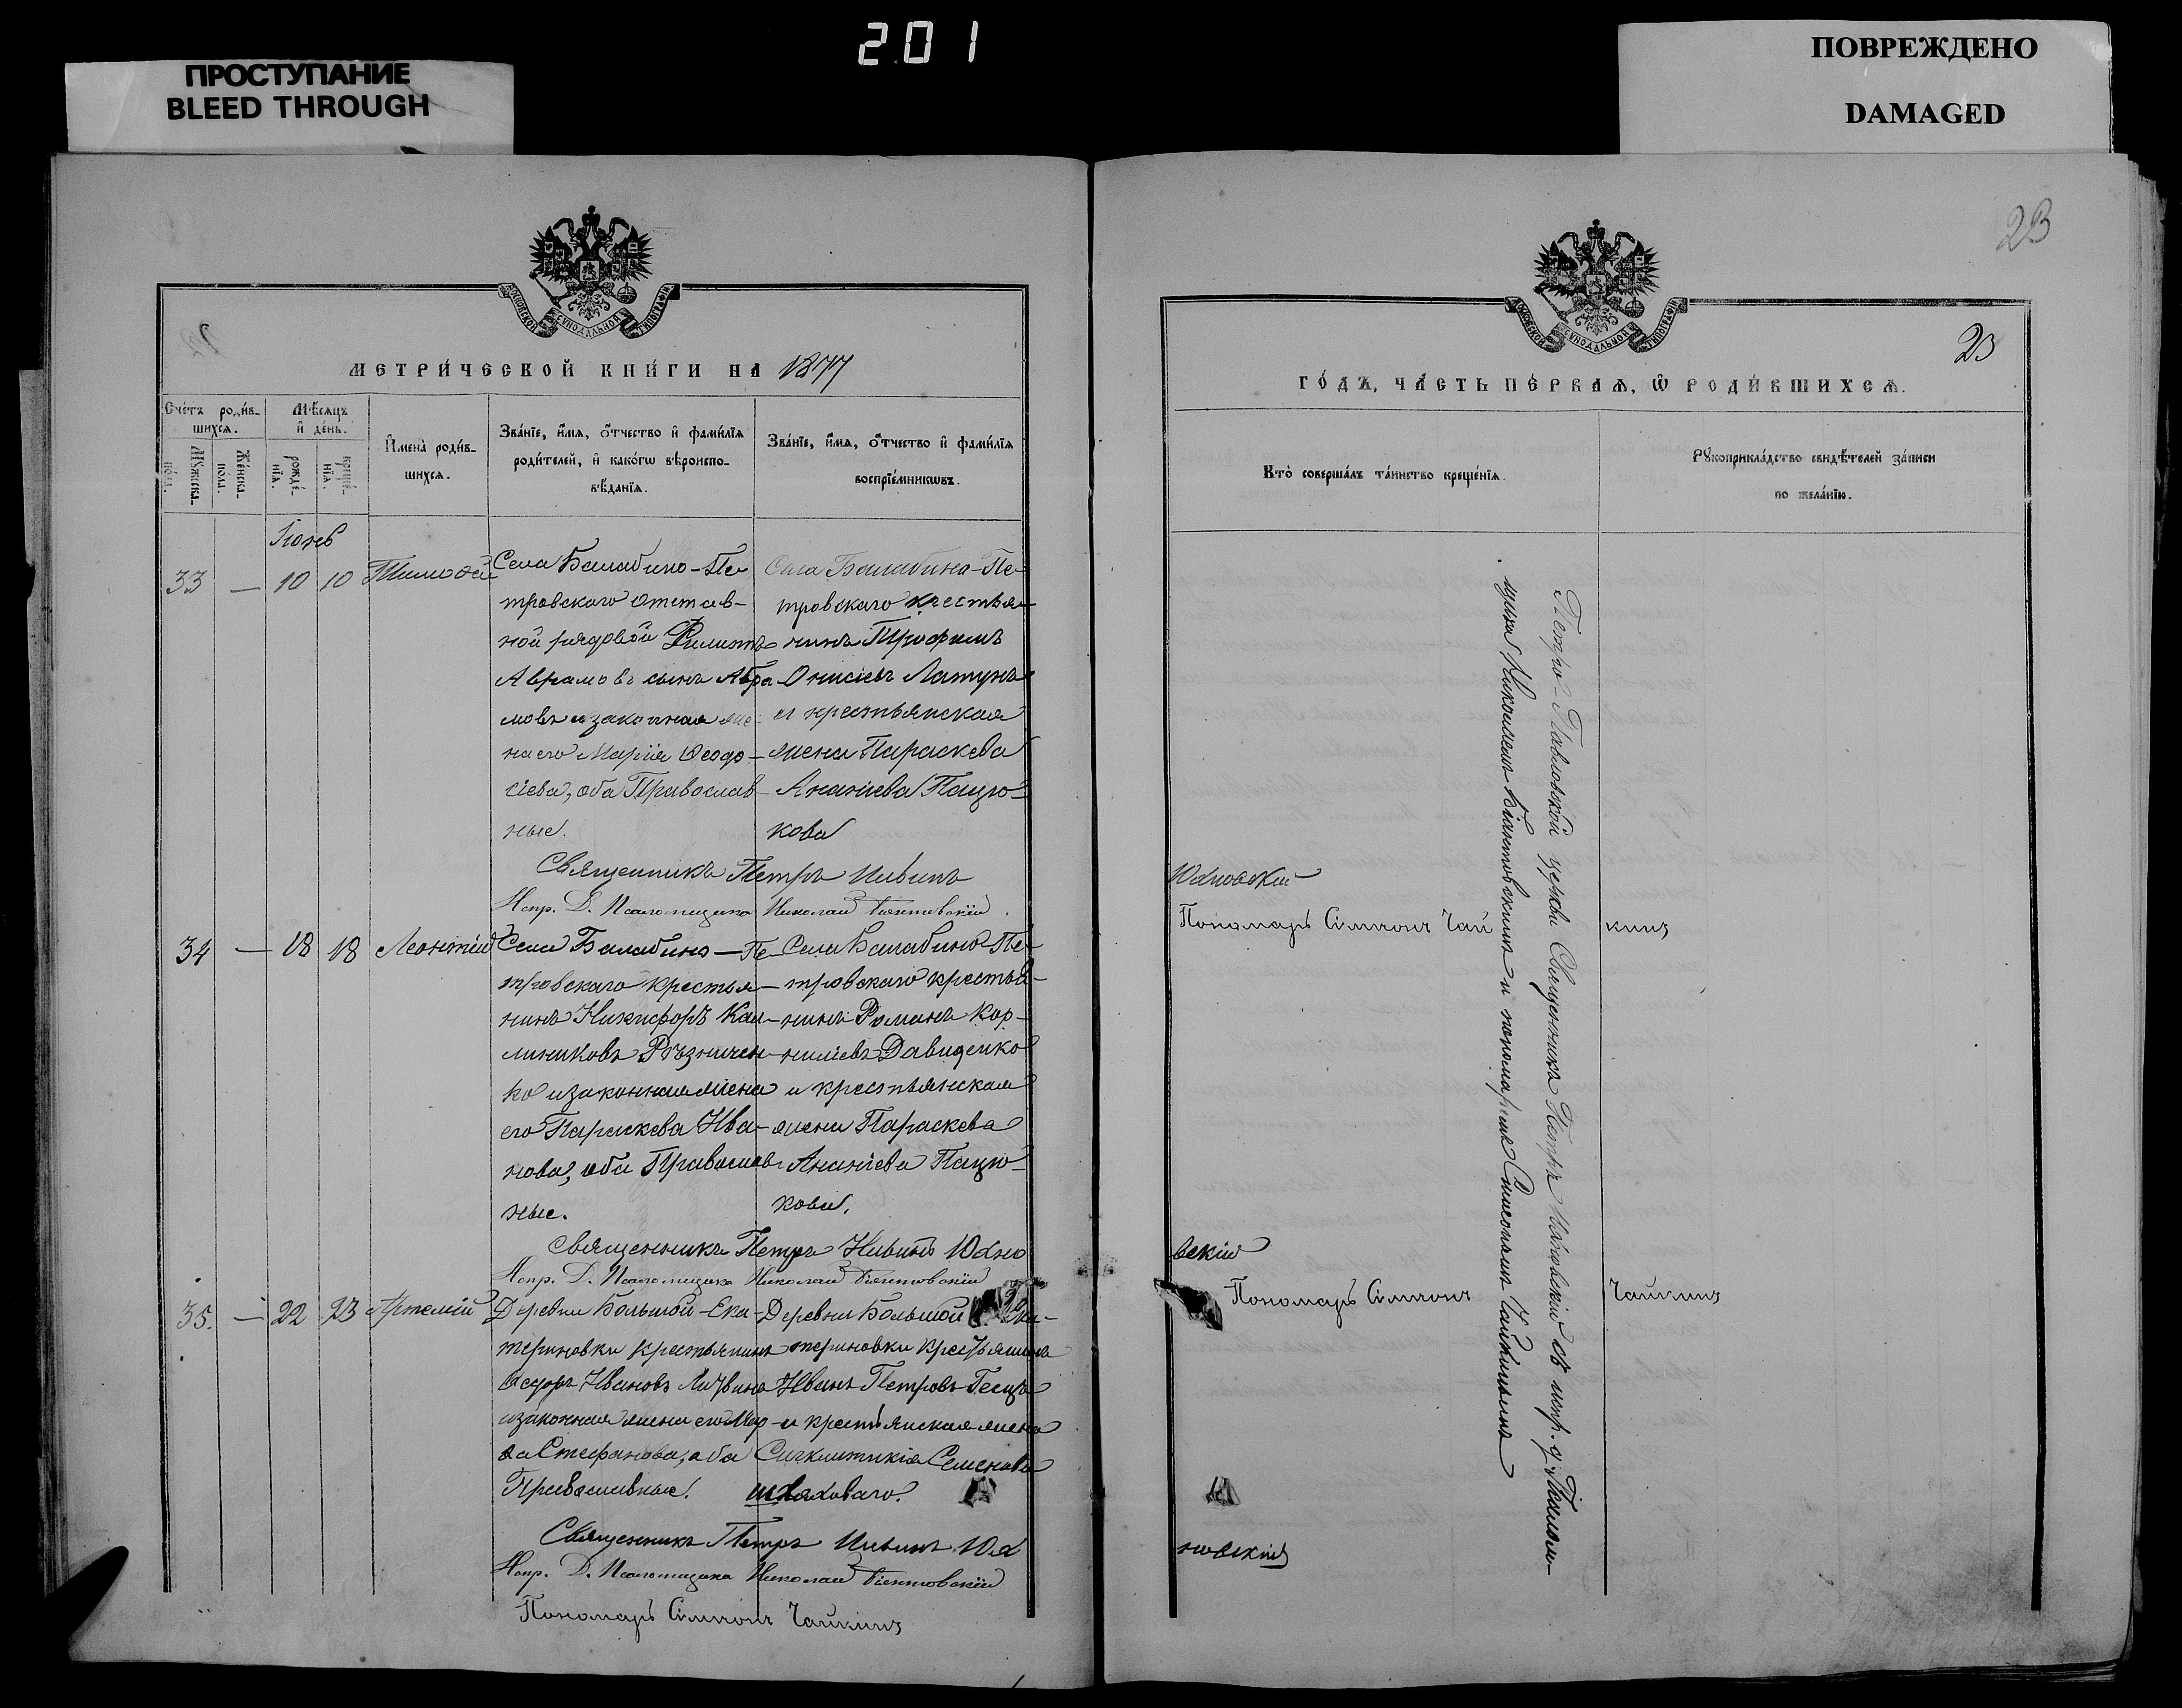 201
ПРОСТУПАНИЕ
BLEED THROUGH
ПОВРЕЖДЕНО
DAMAGED
МЕТРИ́ЧЕСКОЙ КНИ́ГИ НА 1877
Сче́тъ роди́в-
шихсѧ.
Мѣ́сѧцъ
и҆ де́нь.
И҆мена̀ роди́в-
шихсѧ.
Зва́нїе, и҆́мѧ, ѻ҆́тчество и҆ фами́лїѧ
роди́телей, и҆ како́гѡ вѣроиспо-
вѣ́данїѧ.
Зва́нїе, и҆́мѧ, ѻ҆́тчество и҆ фами́лїѧ
воспрїе́мникѡвъ.
Мꙋ́жеска
по́ла.
Же́нска
по́ла.
рожде́-
нїѧ.
креще́-
нїѧ.
Іюнь
33 — 10 10 Тимофей
Села Балабино-Пе-
тровскаго отстав-
ной рядовой Филиппъ
Аврамовъ сынъ Абра-
мовъ и законная же-
на его Марія Феодо-
сіева, оба Православ-
ные.
Села Балабина-Пе-
тровскаго крестья-
нинъ Трофимъ
Онисіевъ Латунъ
и крестьянская
жена Параскева
Ананіева Пацю-
кова
Священникъ Петръ Ивинъ
Испр. д. Псаломщика Николай
34 — 18 18 Леонтій
Села Балабино-Пе-
тровскаго крестья-
нинъ Никифоръ Кал-
линиковъ Рѣзничен-
ко и законная жена
его Параскева Ива-
нова, оба Православ-
ные.
Села Балабино-Пе-
тровскаго крестья-
нинъ Романъ Кор-
нилiевъ Давиденко
и крестьянская
жена Параскева
Ананіева Пацю-
кова.
Священникъ Петръ Ивинъ Юхно
Испр. д. Псаломщика Николай
35. — 22 23 Артемій
Деревни Большой-Ека-
териновки крестьянинъ
Феодоръ Ивановъ Литвинъ
и законная жена его Мар-
фа Стефанова, оба
Православные.
Деревни Большой Ека-
териновки крестьянинъ
Иванъ Петровъ
и крестьянская жена
Синклитикія Семенова
Священникъ Петръ Ивинъ Юх
Испр. д. Псаломщика Николай
Пономарь Симеонъ Чайкинъ
23
23
ГО́ДЪ, ЧА́СТЬ ПЕ́РВАѦ, Ѡ҆ РОДИ́ВШИХСѦ.
Кто̀ соверша́лъ та́инство креще́нїѧ.
Рꙋкоприкла́дство свидѣ́телей за́писи
по жела́нїю.
Юхновскій
Пономарь Симеонъ Чай кинъ
вскій
Пономарь Симеонъ Чайкинъ
новскій
Петро-Павловской церкви Священникъ Петръ Юхновскій съ испр. д. Псалом-
щика Николаемъ и пономаремъ Симеономъ Чайкинымъ